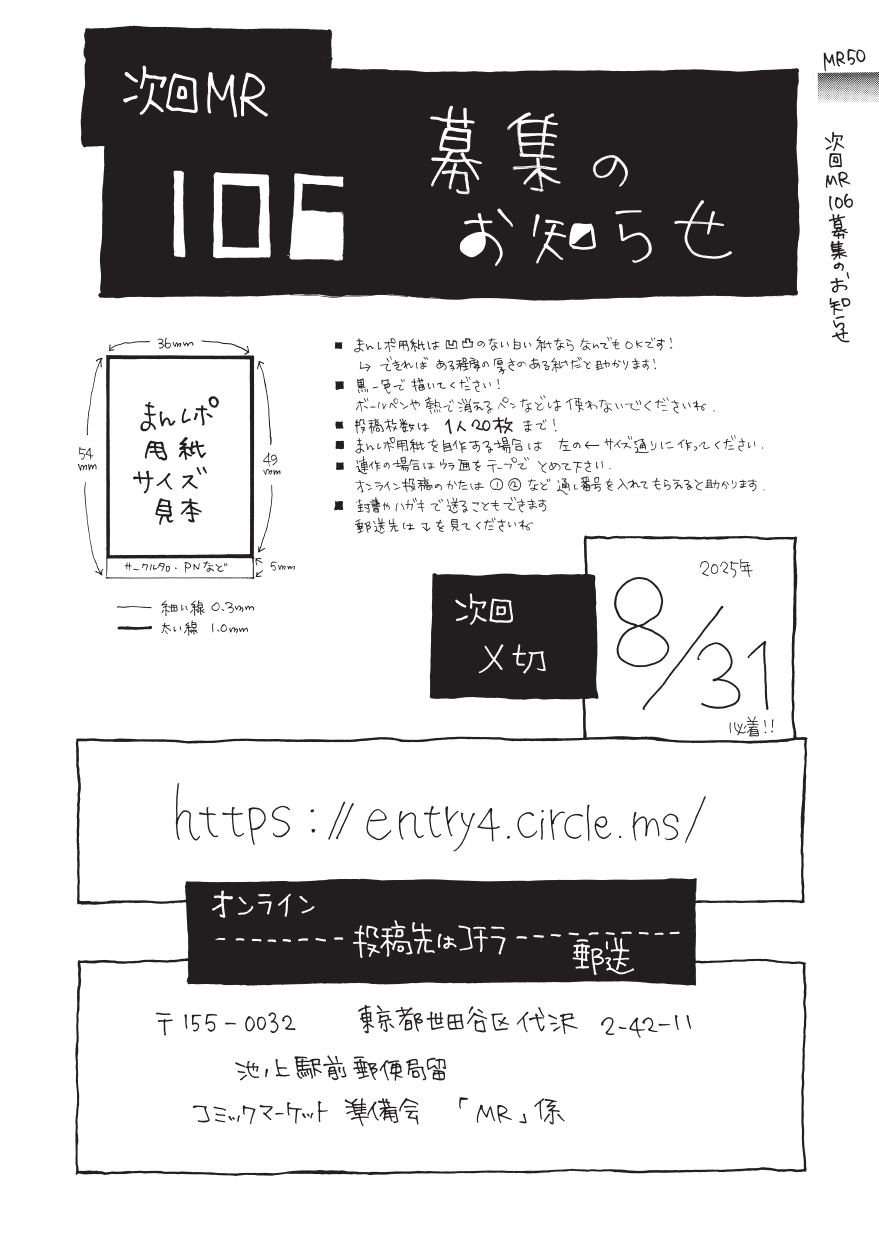 MR50
次回MR106募集のお知らせ
次回MR
106
募集の
お知らせ
36mm
54mm
49mm
まんレポ
用紙
サイズ
見本
サークル名・PNなど
5mm
細い線 0.3mm
太い線 1.0mm
■ まんレポ用紙は凹凸のない白い紙ならなんでもOKです!
↳ できればある程度の厚さのある紙だと助かります!
■ 黒一色で描いてください!
ボールペンや熱で消えるペンなどは使わないでくださいね.
■ 投稿枚数は 1人20枚 まで!
■ まんレポ用紙を自作する場合は 左の←サイズ通りに作ってください.
■ 連作の場合はウラ面をテープでとめて下さい.
オンライン投稿のかたは①②など通し番号を入れてもらえると助かります.
■ 封書かハガキで送ることもできます
郵送先は↓を見てくださいね
次回
〆切
2025年
8/31
必着!!
https://entry4.circle.ms/
オンライン
--------投稿先はコチラ----------
郵送
〒155-0032 東京都世田谷区代沢 2-42-11
池ノ上駅前郵便局留
コミックマーケット 準備会 「MR」係